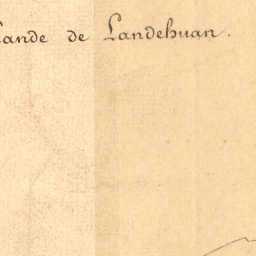 Lande de Landehuan.